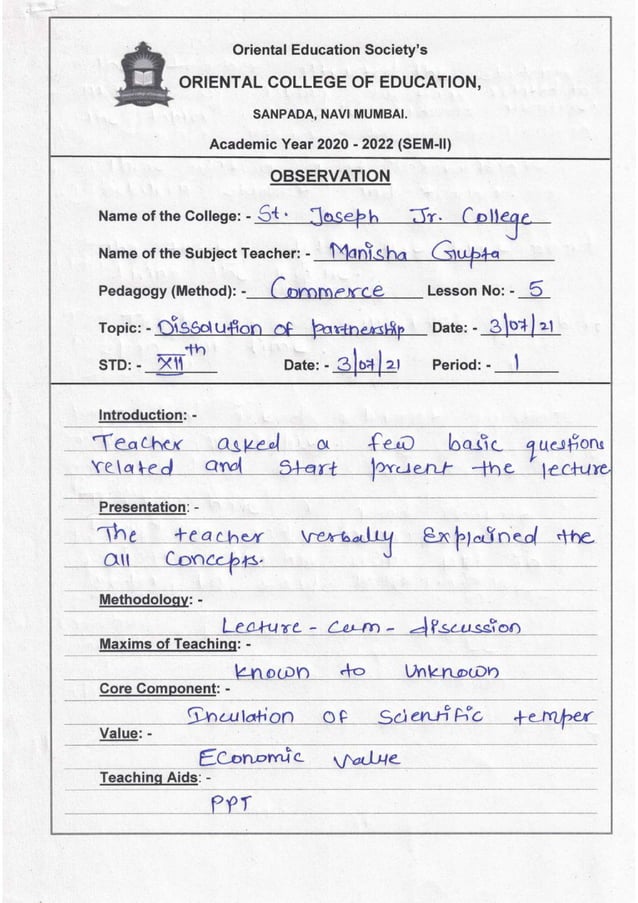 Oriental Education Society's
ORIENTAL COLLEGE OF EDUCATION,
SANPADA, NAVI MUMBAI.
Academic Year 2020 - 2022 (SEM-II)
OBSERVATION
Name of the College: - St. Joseph Jr. College
Name of the Subject Teacher: - Manisha Gupta
Pedagogy (Method): - Commerce Lesson No: - 5
Topic: - Dissolution of partnership Date: - 3/07/21
STD: - XIIth Date: - 3/07/21 Period: - 1
Introduction: -
Teacher asked a few basic questions
related and start present the lecture
Presentation: -
The teacher verbally Explained the
all Concepts.
Methodology: -
Lecture - cum - discussion
Maxims of Teaching: -
Known to Unknown
Core Component: -
Inculation of Scientific temper
Value: -
Economic Value
Teaching Aids: -
PPT